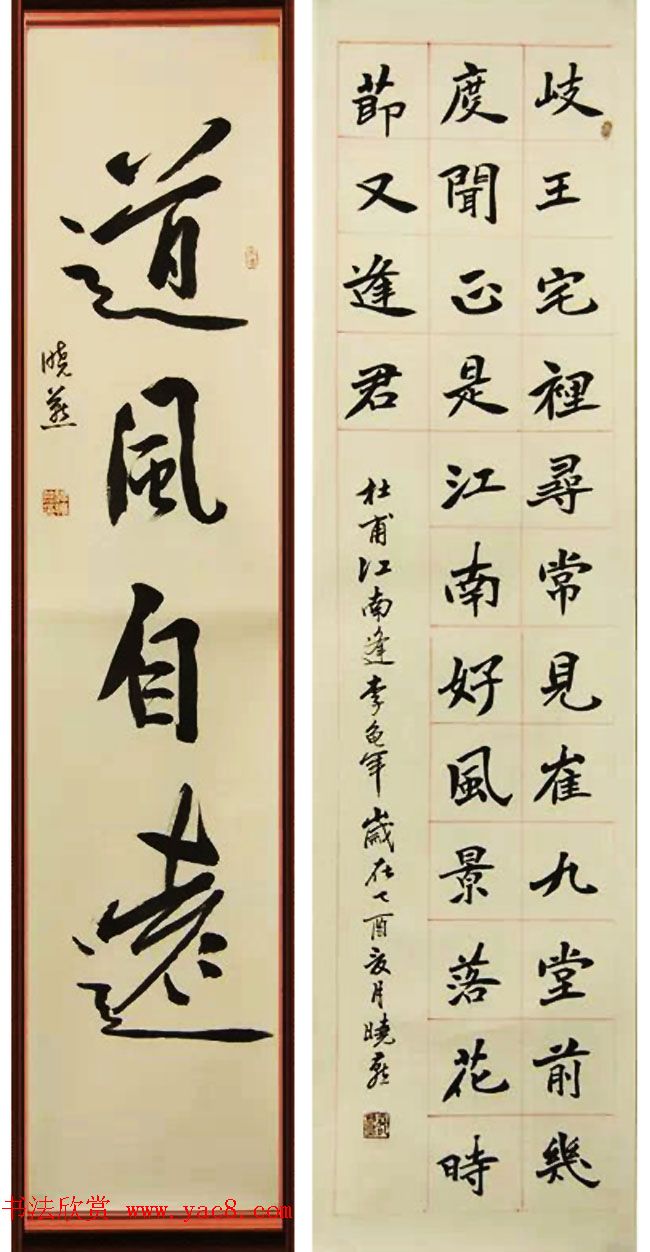 道風自遠
晓燕
岐王宅裡尋常見崔九堂前幾
度聞正是江南好風景落花時
莭又逢君
杜甫江南逢李龟年歲在乙酉夏月曉燕
书法欣赏 www.yac8.com